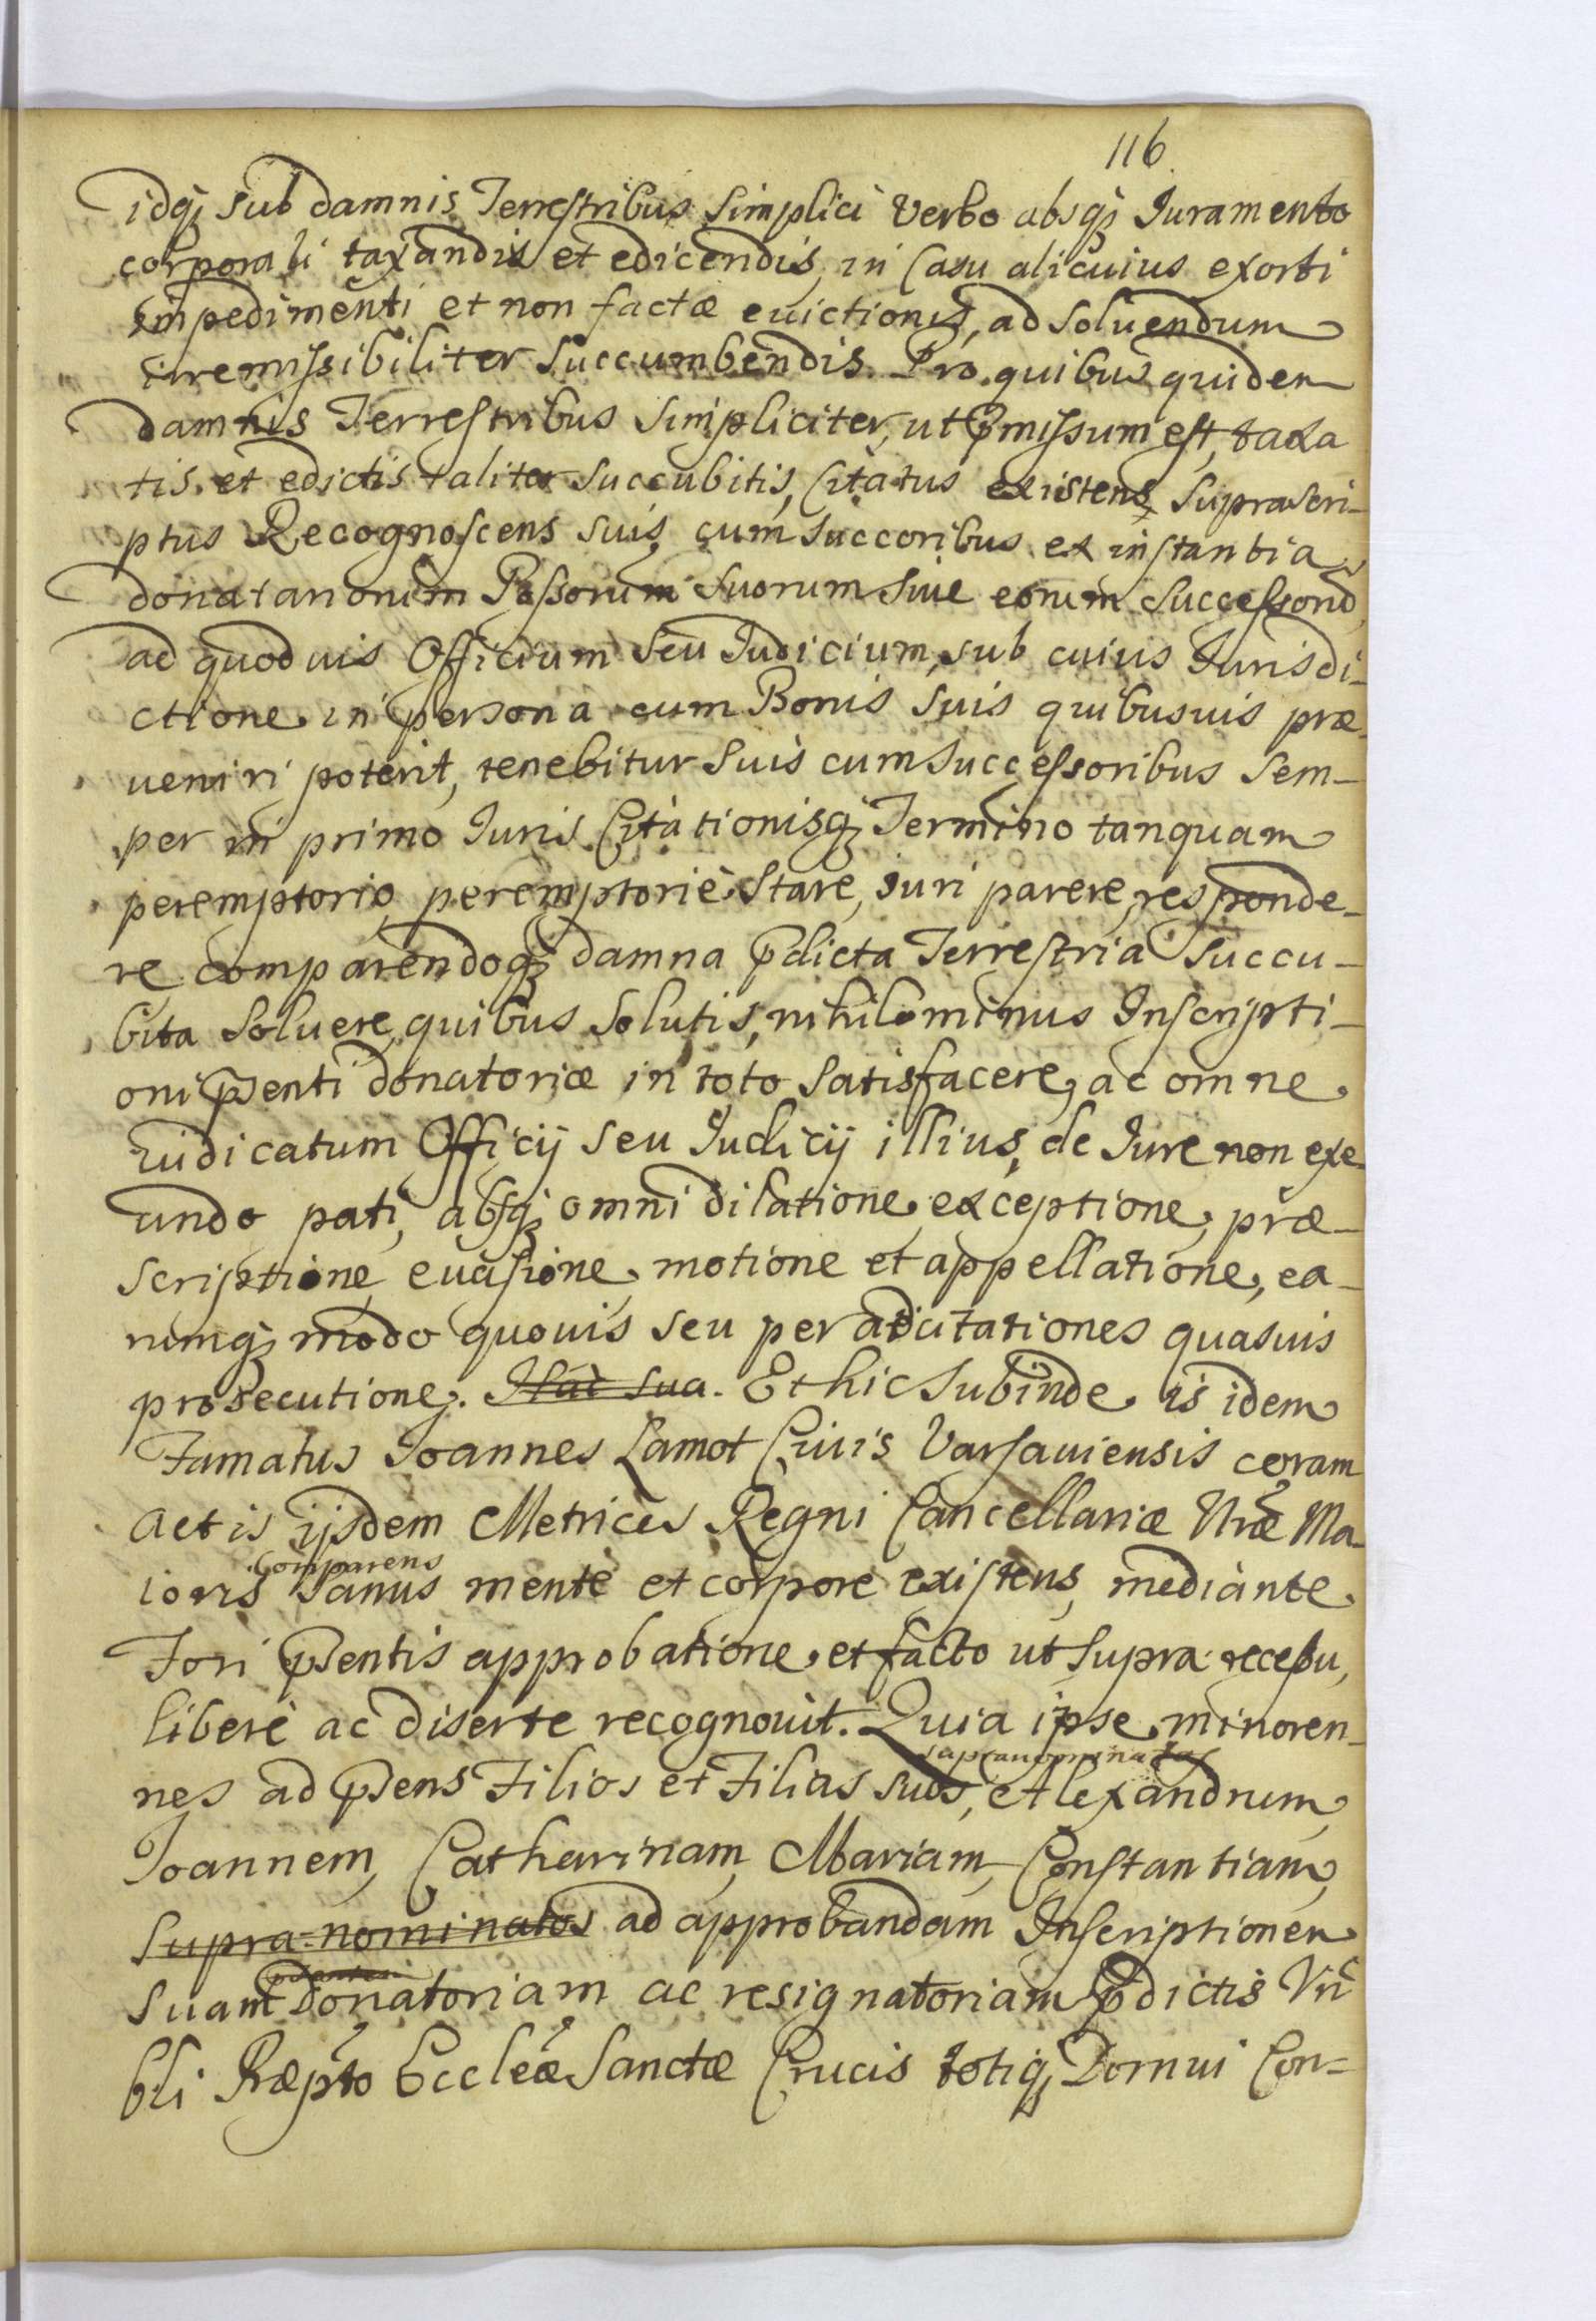 116
idq₃ sub damnis Terrestribus simplici Verbo absq₃ Iuramento
corporali taxandis et edicendis, in Casu alicuius exorti
impedimenti et non factæ euictionis, ad soluendum
irremissibiliter succumbendis. Pro quibus quidem
damnis Terrestribus simpliciter, ut p̄missum est, taxa
tis, et edictis taliter succubitis, Citatus existens suprascri-
ptus Recognoscens suis cum succoribus ex instantia
donatariorum Possorum suorum siue eorum Successorū,
ad quoduis Officium seu Iudicium, sub cuius Iurisdi-
ctione in persona cum Bonis suis quibusuis præ-
ueniri poterit, tenebitur suis cum successoribus sem-
per in primo Iuris Citationisq₃ Termino tanquam
peremptorio peremptoriè stare, iuri parere, responde-
re comparendoq₃ damna p̄dicta Terrestria succu-
bita soluere, quibus solutis, nihilominus Inscripti-
oni p̄senti donatoriæ in toto satisfacere, ac omne
iudicatum Officij seu Iudicij illius, de Iure non exe-
undo pati, absq₃ omni dilatione, exceptione, præ-
scriptione, euasione, motione et appellatione, ea-
rumq₃ modo quouis seu per adcitationes quasuis
prosecutione. Hac sua. Et hic subinde is idem
Famatus Ioannes Lamot Ciuis Varsauiensis coram
Actis ijsdem Metrices Regni Cancellariæ Nr̃æ Ma-
comparens
ioris sanus mente et corpore existens, mediante
Fori p̄sentis approbatione, et facto ut supra recessu,
liberè ac diserte recognouit. Quia ipse minoren-
supranominatos
nes ad p̄sens Filios et Filias suos, Alexandrum,
Ioannem, Catharinam, Mariam, Constantiam,
supra nominatos ad approbandam Inscriptionem
p̄sentem
suam Donatoriam ac resignatoriam p̄dictis Vñ
bli Præp̃to Eccleæ Sanctæ Crucis totiq₃ Domui Con=